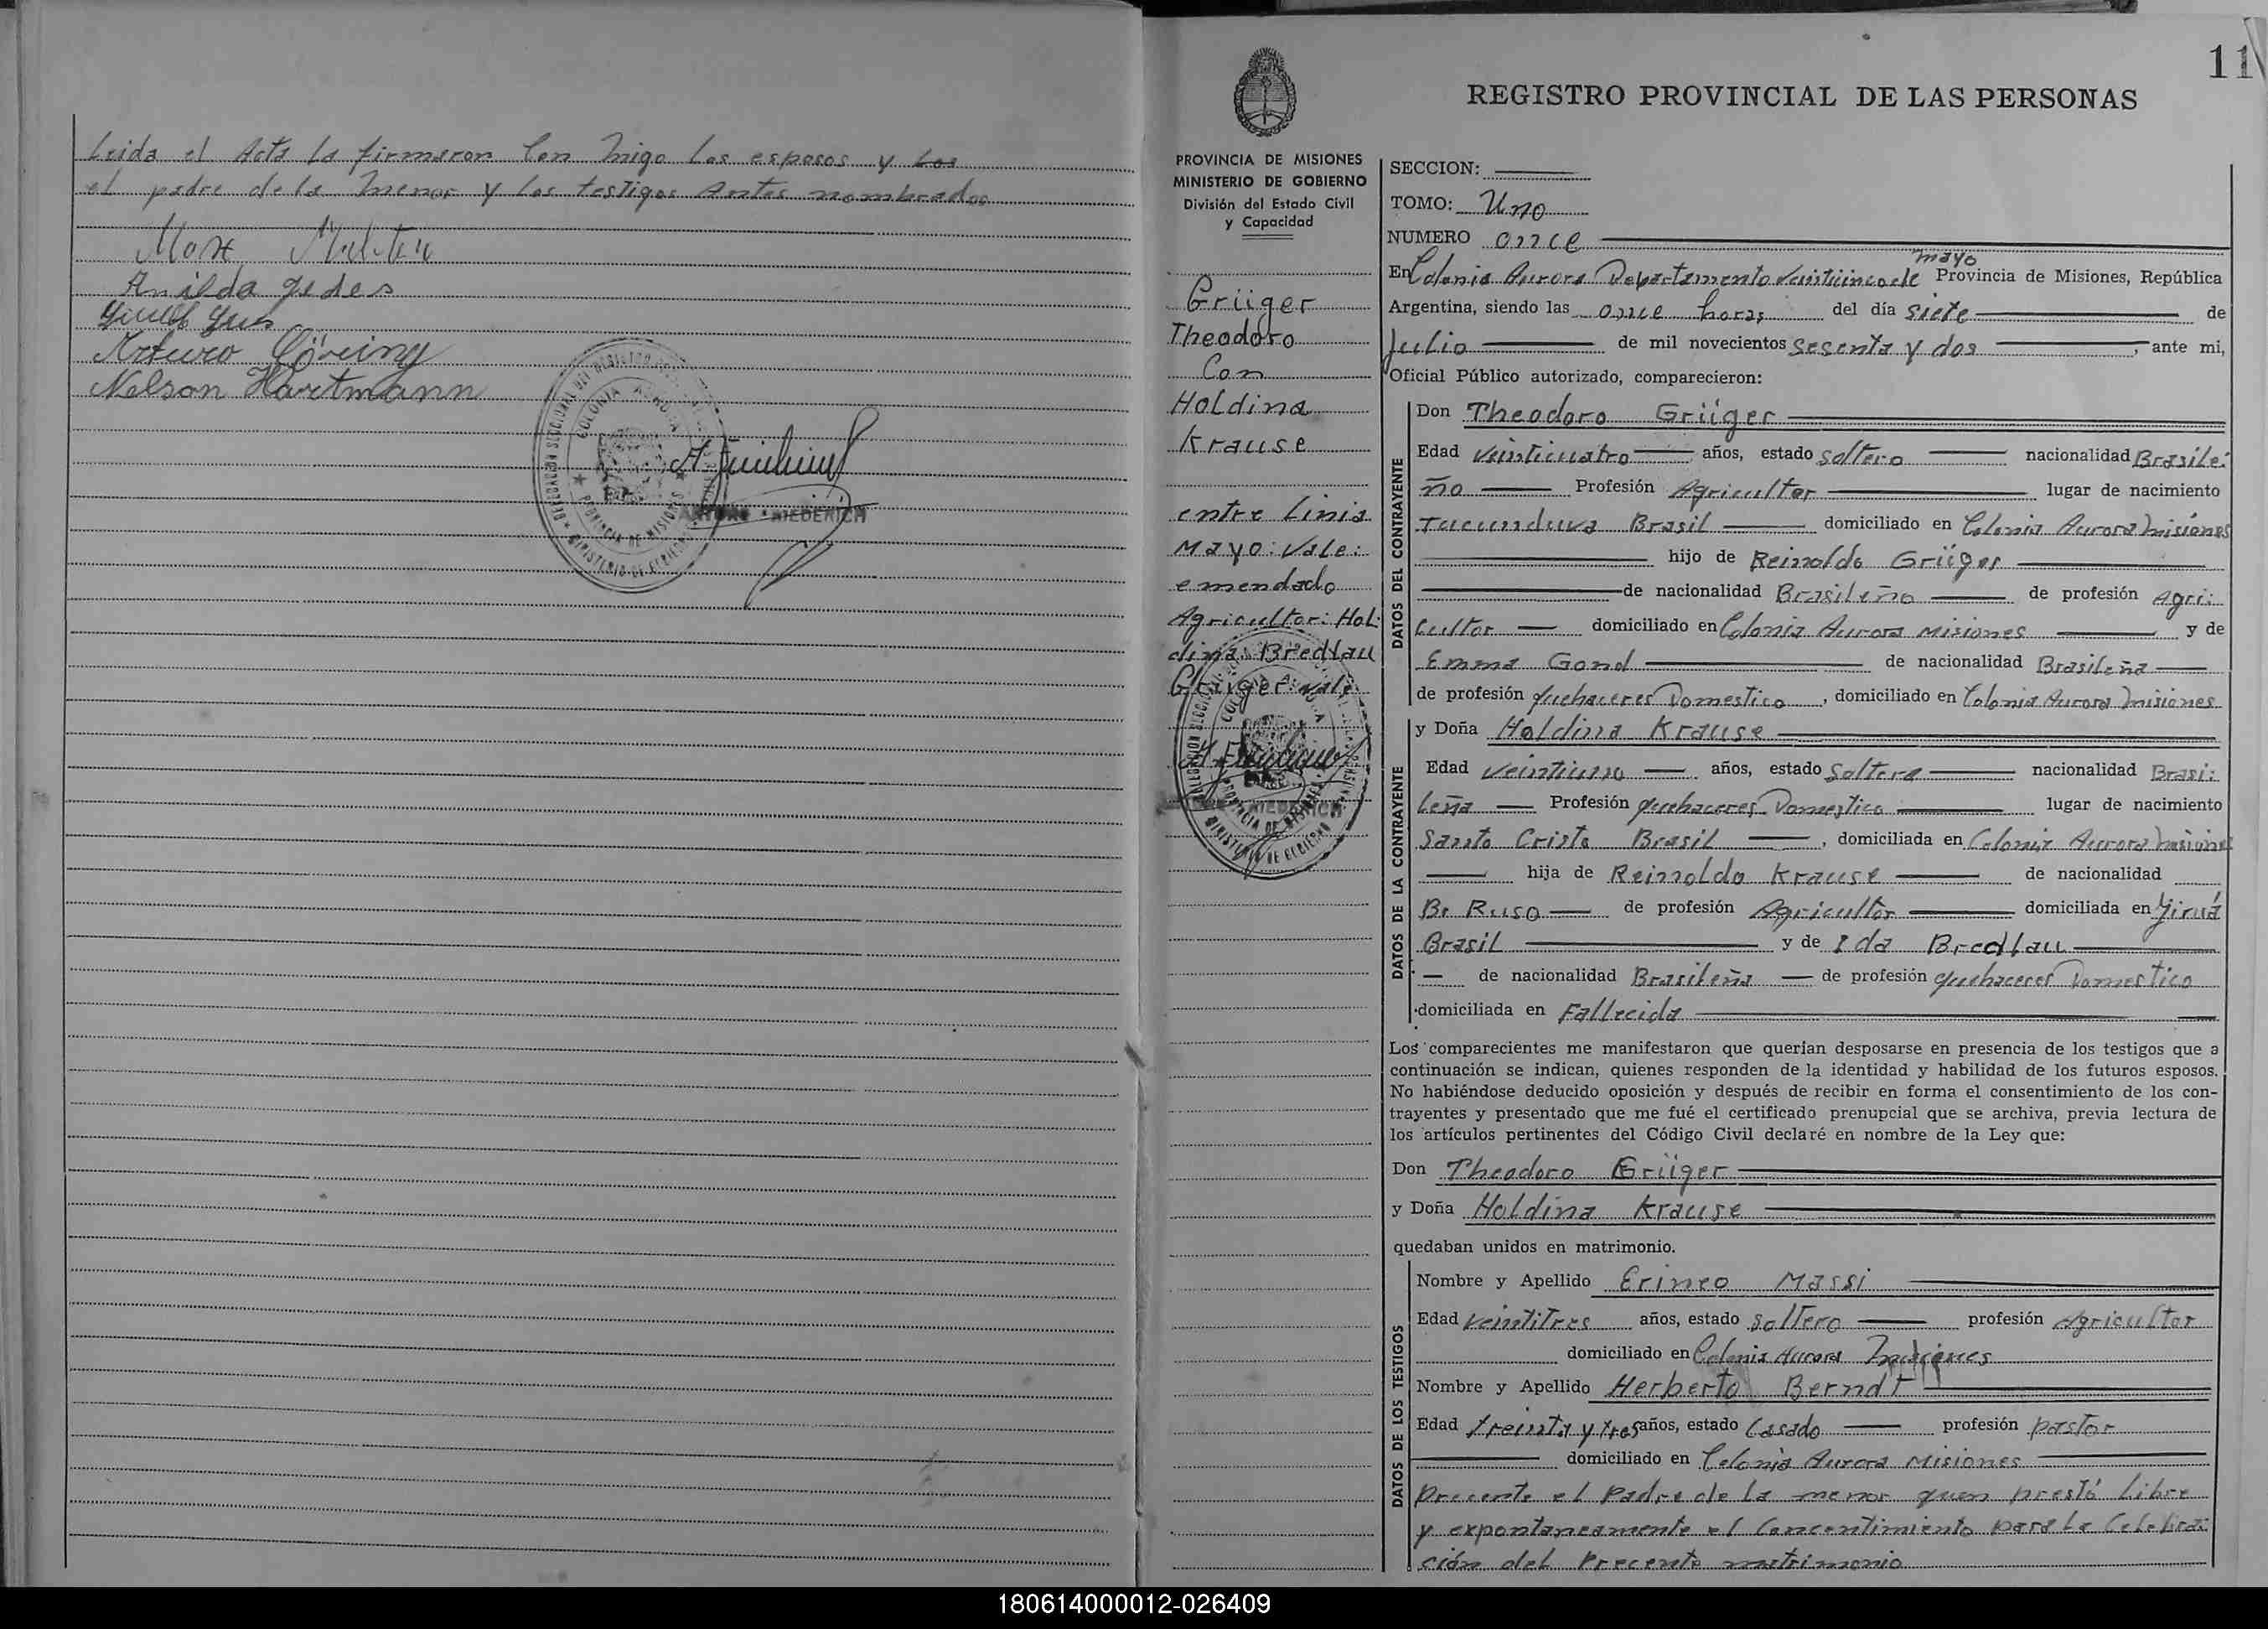 Leida el Acta la firmaron Con migo los esposos y los
el padre de la menor y los testigos Antes nombrados
Anilda Jedes
Arturo Göring
Nelson Hartmann
COLONIA AURORA
PROVINCIA DE MISIONES
MINISTERIO DE GOBIERNO
11
REGISTRO PROVINCIAL DE LAS PERSONAS
PROVINCIA DE MISIONES
MINISTERIO DE GOBIERNO
División del Estado Civil
y Capacidad
Grüger
Theodoro
Con
Holdina
Krause
entre Linia
Mayo: Vale:
emendado
Agricultor: Hol:
dina: Bredlau
Grüger: vale
SECCION:
TOMO: Uno
NUMERO once
mayo
En Colonia Aurora Departamento Veinticinco de Provincia de Misiones, República
Argentina, siendo las once horas del día siete de
Julio de mil novecientos sesenta y dos, ante mi,
Oficial Público autorizado, comparecieron:
DATOS DEL CONTRAYENTE
Don Theodoro Grüger
Edad veinticuatro años, estado soltero nacionalidad Brasile:
ño Profesión Agricultor lugar de nacimiento
Tucunduva Brasil domiciliado en Colonia Aurora Misiones
hijo de Reinoldo Grüger
de nacionalidad Brasileño de profesión Agri:
cultor domiciliado en Colonia Aurora Misiones y de
Emma Gond de nacionalidad Brasileña
de profesión quehaceres Domestico, domiciliado en Colonia Aurora Misiones
DATOS DE LA CONTRAYENTE
y Doña Holdina Krause
Edad veintiuno años, estado Soltera nacionalidad Brasi:
leña Profesión quehaceres Domestico lugar de nacimiento
Santo Cristo Brasil, domiciliada en Colonia Aurora Misiones
hija de Reinoldo Krause de nacionalidad
Br Ruso de profesión Agricultor domiciliada en Jiruá
Brasil y de Ida Bredlau
de nacionalidad Brasileña de profesión quehaceres Domestico
domiciliada en Fallecida
Los comparecientes me manifestaron que querían desposarse en presencia de los testigos que a
continuación se indican, quienes responden de la identidad y habilidad de los futuros esposos.
No habiéndose deducido oposición y después de recibir en forma el consentimiento de los con-
trayentes y presentado que me fué el certificado prenupcial que se archiva, previa lectura de
los artículos pertinentes del Código Civil declaré en nombre de la Ley que:
Don Theodoro Grüger
y Doña Holdina Krause
quedaban unidos en matrimonio.
DATOS DE LOS TESTIGOS
Nombre y Apellido Erineo Massi
Edad veintitres años, estado soltero profesión Agricultor
domiciliado en Colonia Aurora Misiones
Nombre y Apellido Herberto Berndt
Edad treinta y tres años, estado Casado profesión pastor
domiciliado en Colonia Aurora Misiones
precente el Padre de la menor quen prestó Libre
y expontaneamente el Concentimiento para la Celebra:
ción del Precente matrimonio
180614000012-026409